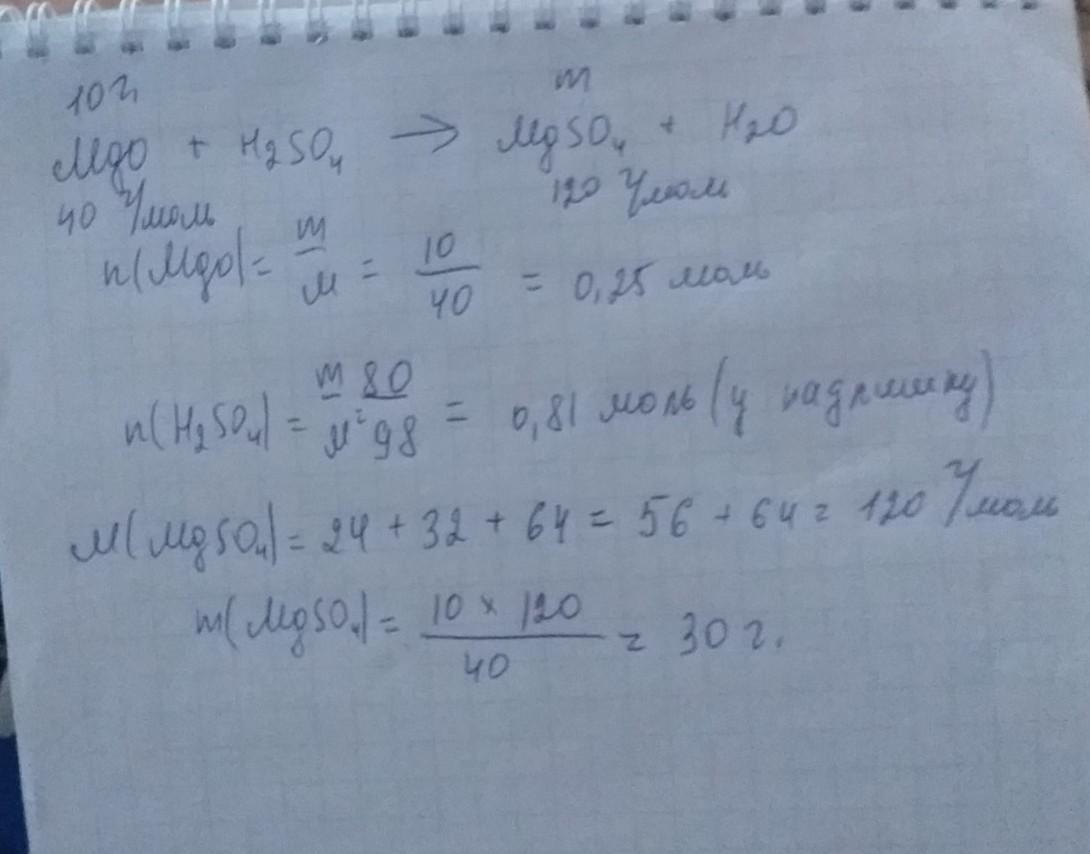 10г m
MgO + H2SO4 → MgSO4 + H2O
40 г/моль 120 г/моль
n(MgO) = m/M = 10/40 = 0,25 моль
n(H2SO4) = m/M = 80/98 = 0,81 моль (у надлишку)
M(MgSO4) = 24 + 32 + 64 = 56 + 64 = 120 г/моль
m(MgSO4) = 10 × 120/40 = 30 г.